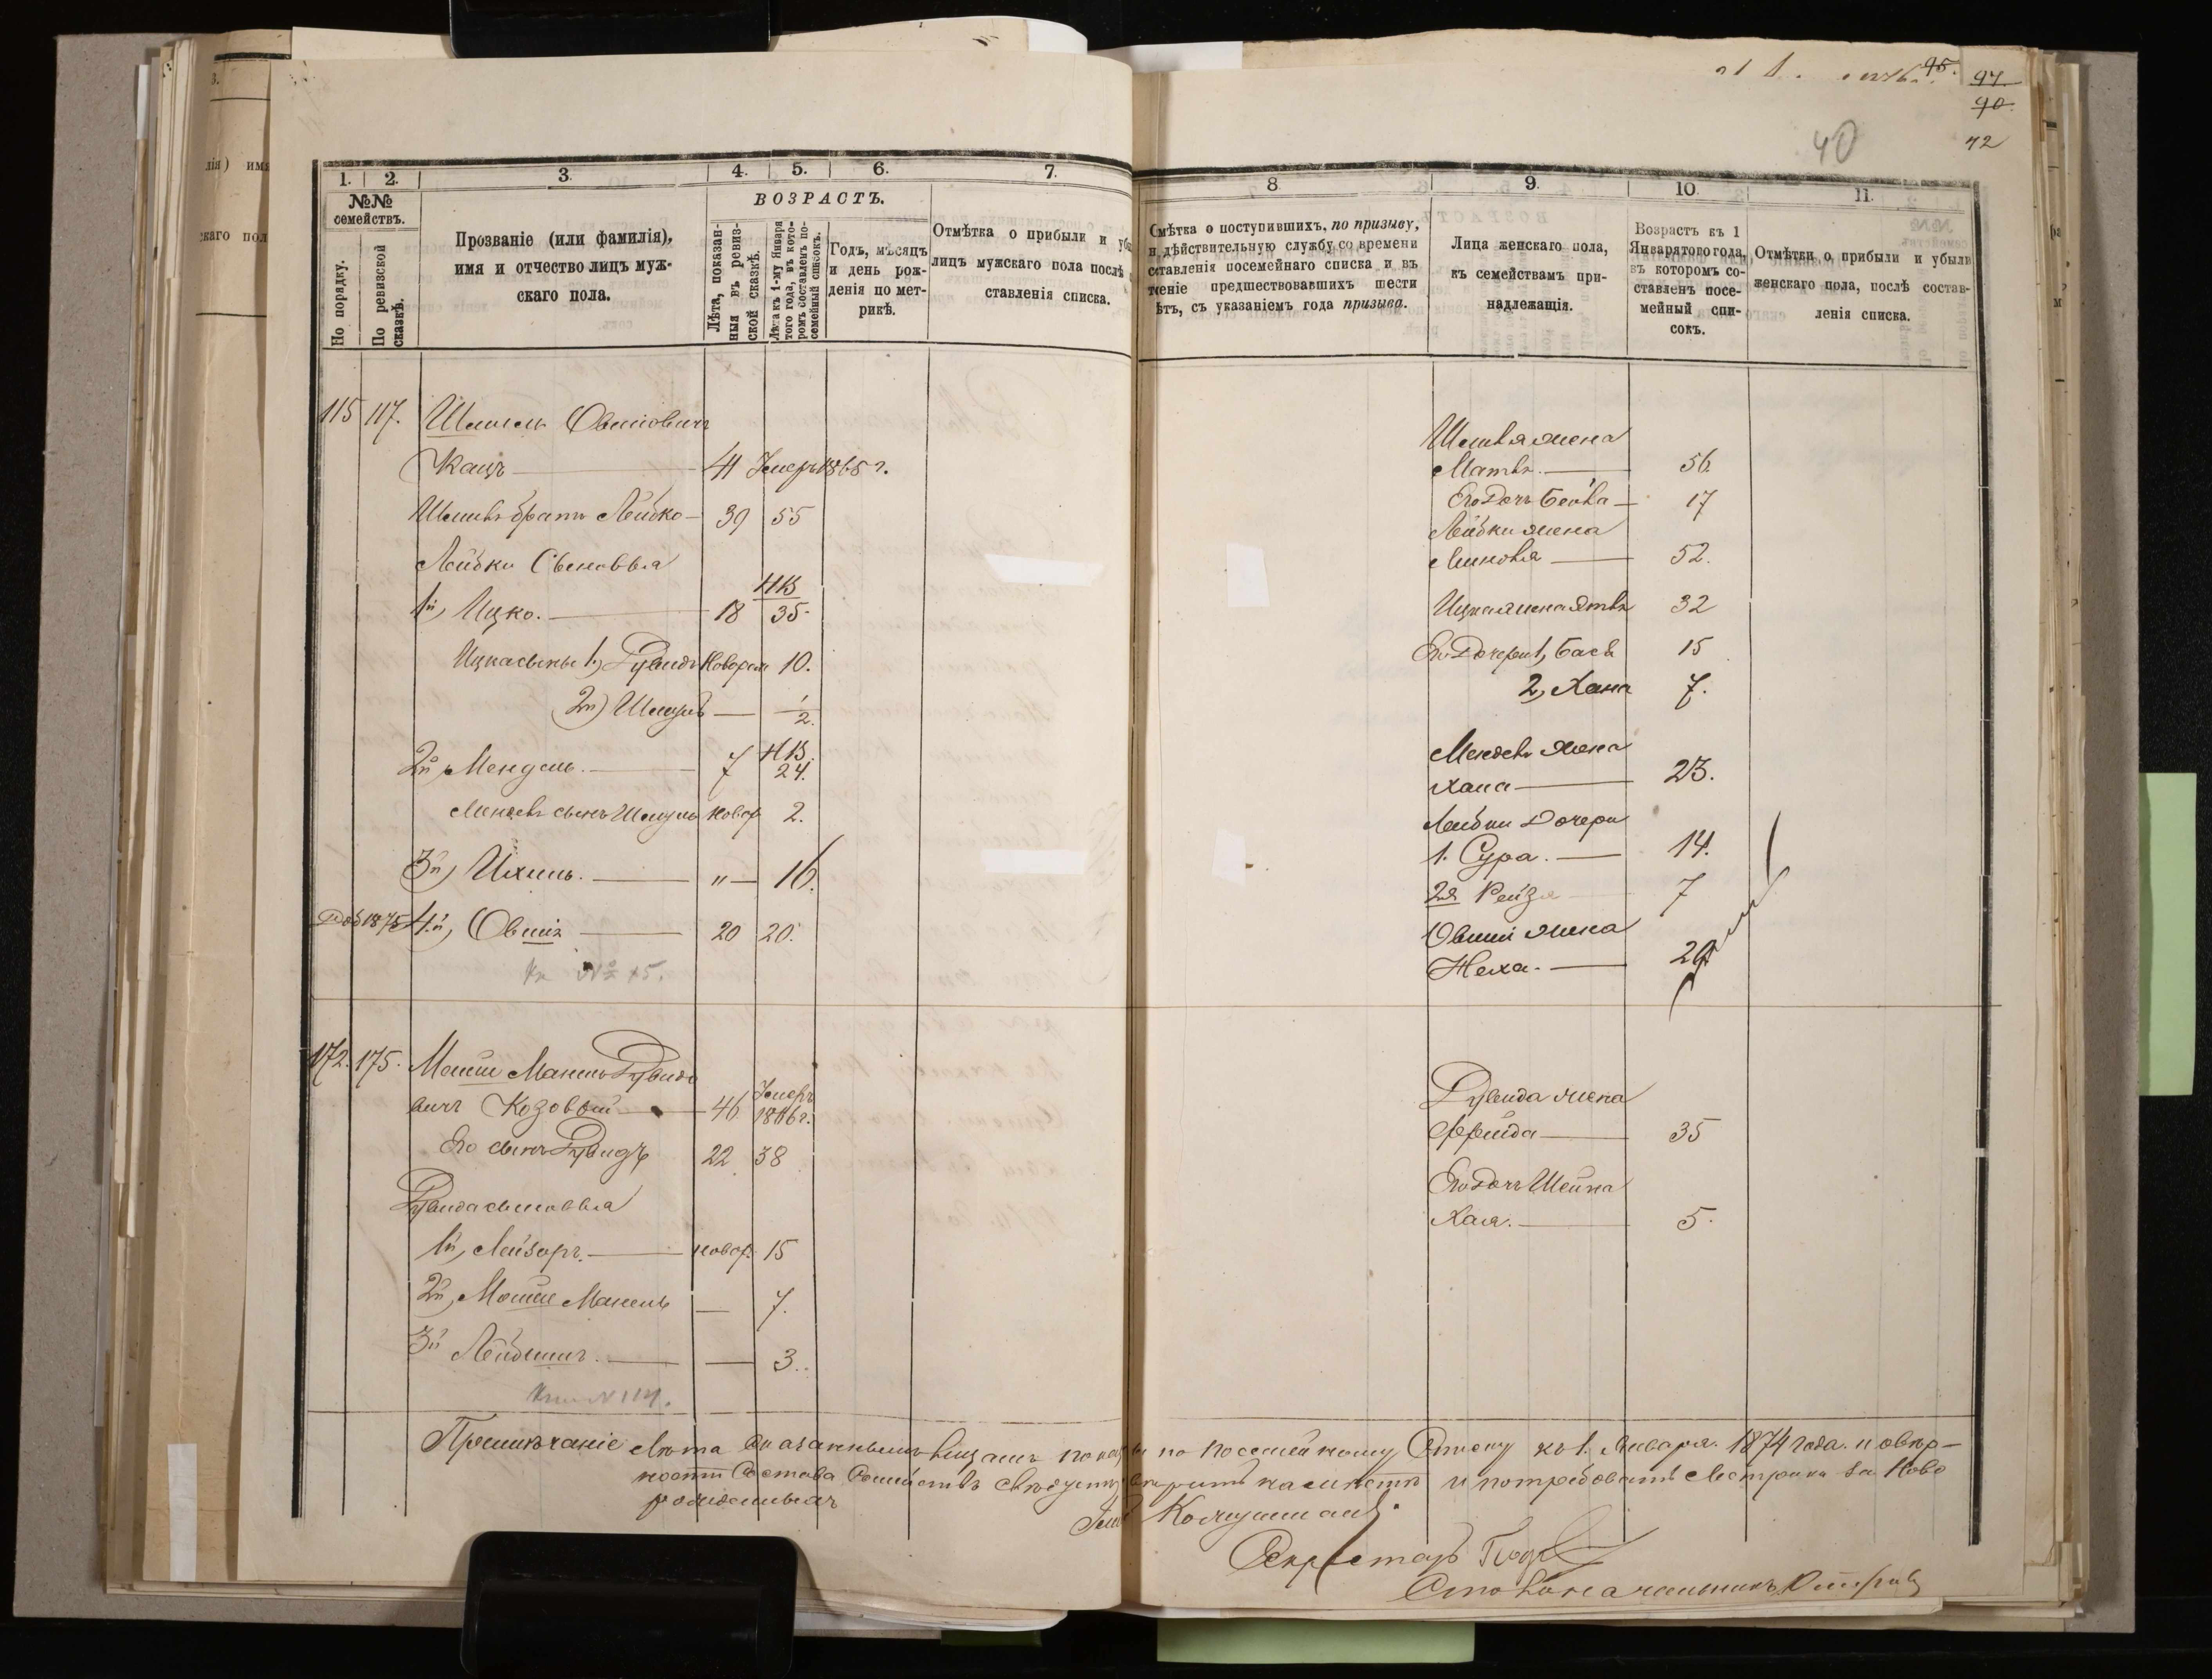 95.
97
90
72
40
1. 2. 3. 4. 5. 6. 7.
№№ семействъ.
По порядку.
По ревизской сказкѣ.
Прозваніе (или фамилія),
имя и отчество лицъ муж-
скаго пола.
ВОЗРАСТЪ.
Лѣта, показан-
ныя въ ревиз-
ской сказкѣ.
Лѣта къ 1-му Января
того года, въ кото-
ромъ составленъ по-
семейный списокъ.
Годъ, мѣсяцъ
и день рож-
денія по мет-
рикѣ.
Отмѣтка о прибыли и
лицъ мужскаго пола послѣ
ставленія списка.
115 117. Шмуль Овшіовичъ
Кацъ 41 Умеръ 1865 г.
Шмуля братъ Лейбко 39 55
Лейбки Сыновья
1й, Ицко. 18 НВ 35.
Ицка сыны 1, Рувинъ Новорож 10.
2й) Шмуль 1/2.
2й, Мендель. 7 НВ. 24.
Менделя сынъ Шмуль новор 2.
3й) Ихиль. „ 16.
Доб 1875 4й, Овшія 20 20.
№ 45.
172. 175. Мошко Манель Рувидо
вичъ Козовый 46 Умеръ 1866 г.
Его сынъ Рувидъ 22 38
Рувида сыновья
1й, Лейзоръ. новор. 15
2й, Мошко Манель 7.
3й Лейбишъ. 3.
№ 114.
8 9. 10. 11.
Отмѣтка о поступившихъ, по призыву,
и дѣйствительную службу со времени
составленія посемейнаго списка и въ
теченіе предшествовавшихъ шести
лѣтъ, съ указаніемъ года призыва.
Лица женскаго пола,
къ семействамъ при-
надлежащія.
Возрастъ къ 1
Января того года,
въ которомъ со-
ставленъ посе-
мейный спи-
сокъ.
Отмѣтки о прибыли и убыли
женскаго пола, послѣ состав-
ленія списка.
Шмуля жена
Матля. 56
Его Дочь Бейла 17
Лейбки жена
52.
Ицка жена 32
Его Дочери 1, Бася 15
2, Хана 7.
Менделя жена
Хана 23.
Лейбки Дочери
1. Сура. 14.
2я Рейзя 7
Овшіи жена
Неха. 20
Рувида жена
Фрейда 35
Его Дочь Шейна
Хая. 5.
Примѣчаніе Лѣта показаннымъ лицамъ по посемейному Списку къ 1. Января. 1874 года. и
Состава Семействъ и потребовать Метрики на Ново
рожденныхъ
Секретарь
Столоначальникъ